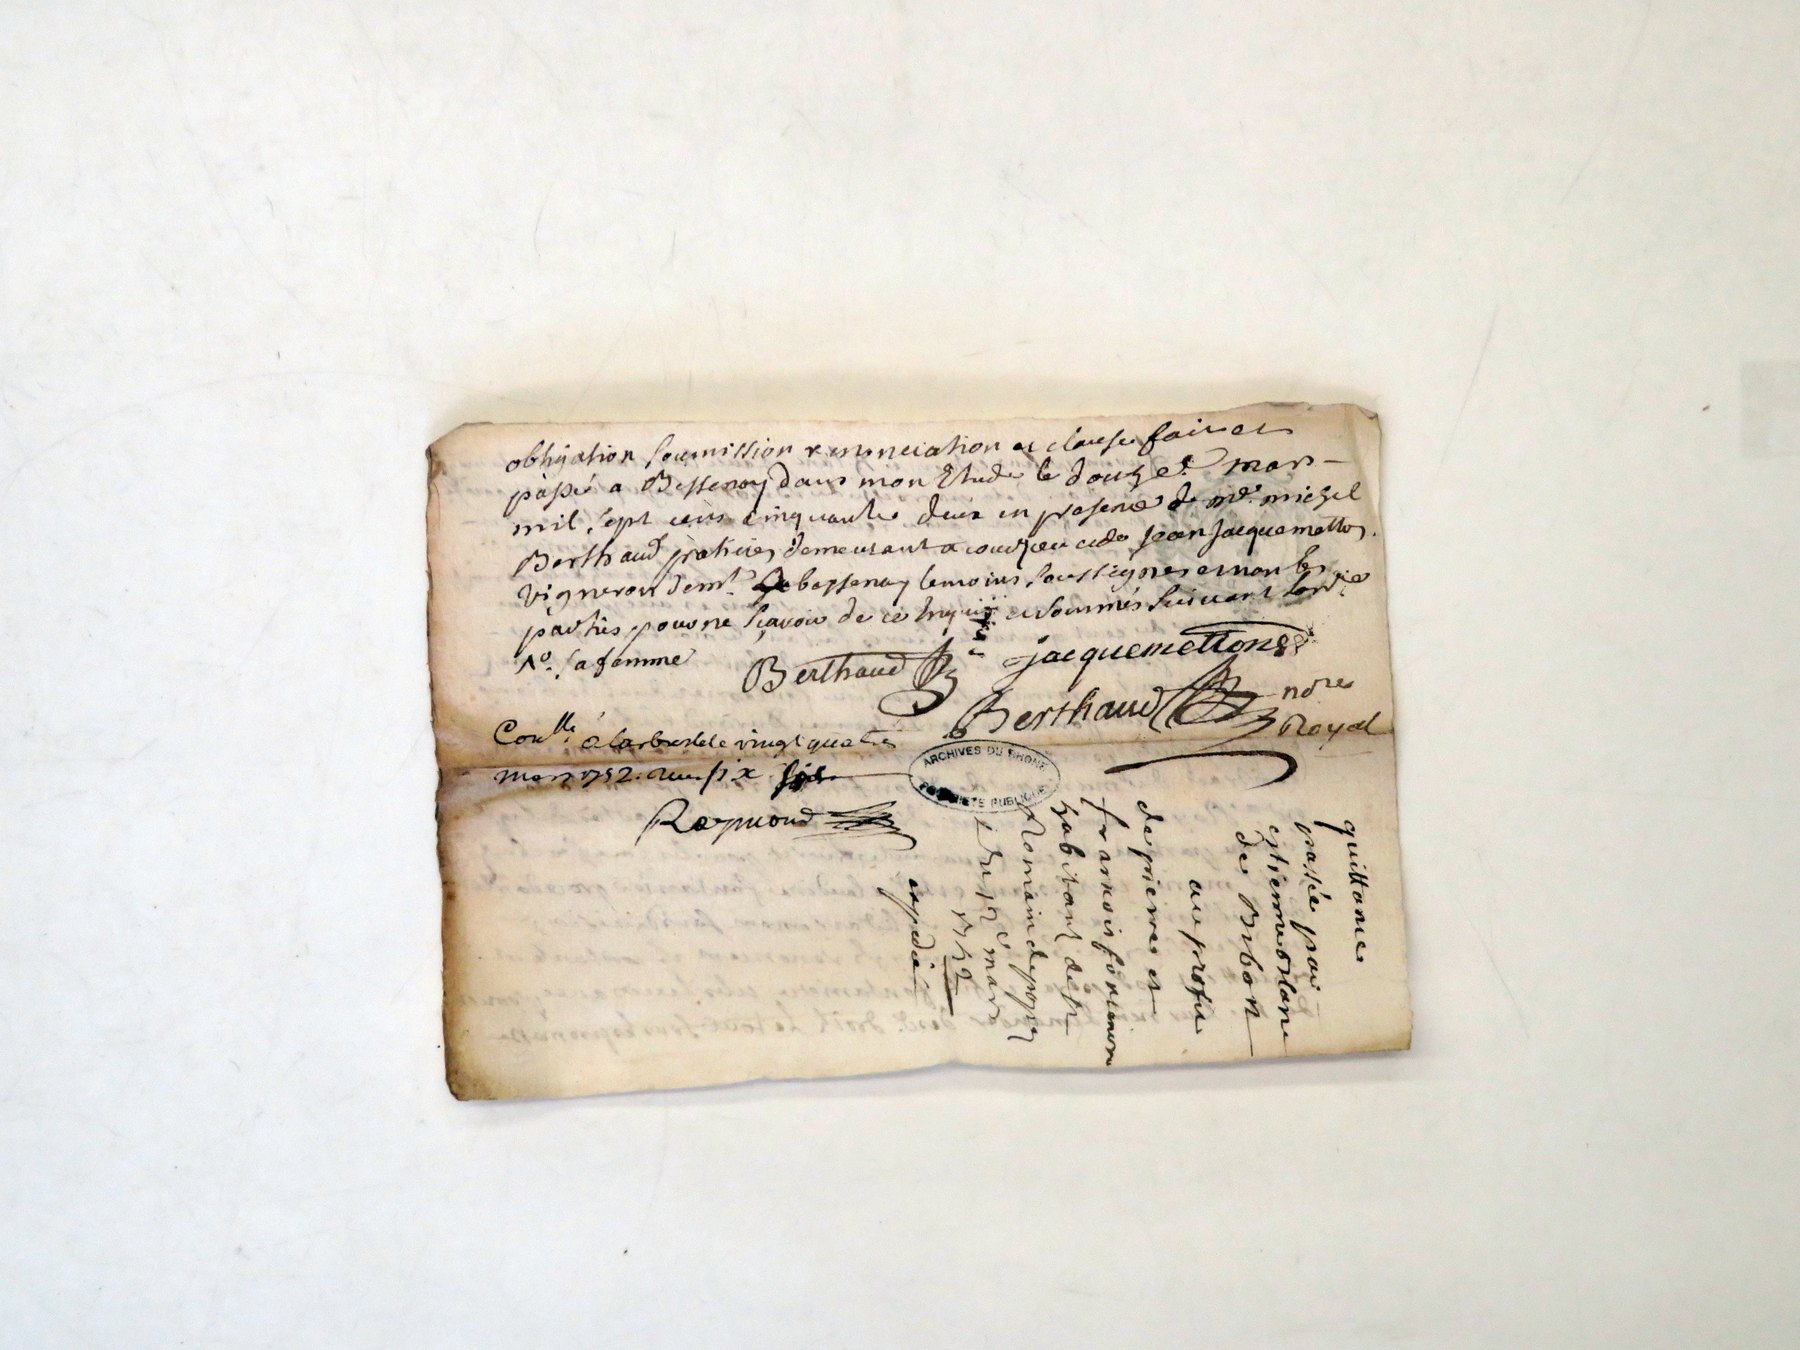 obligation soumission renonciation et clause fait et
passé a Bessenay dans mon Etude le douze mars
mil sept cens cinquante deux en presence de me. michel
Berthaud praticien demeurant a courzieu et de Jean Jacquemetton
vigneron demt. a bessenay temoins soussignes et non les
parties pour ne sçavoir de ce enquis et sommés suivant
sa femme
Berthaud
Jacquemetton
Berthaud nore
Royal
Conlle à larbresle le vingt quatre
mars 1752. six
Raymond
ARCHIVES DU RHONE
PROPRIETE PUBLIQUE
quittance
passée par
estienne
de Bibost
au profit
de pierre et
francois
habitant de st
Romain de popey
du 12e mars
1752
expedié